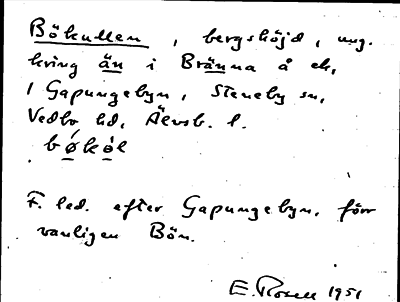 Bökullen, bergshöjd, ung.
kring än i Bränna å ek,
1 Gapungebyn, Steneby sn,
Vedbo hd, Älvsb. l.
bøkøl
F. led. efter Gapungebyn, förr
vanligen Bön.
E. Rosell 1951